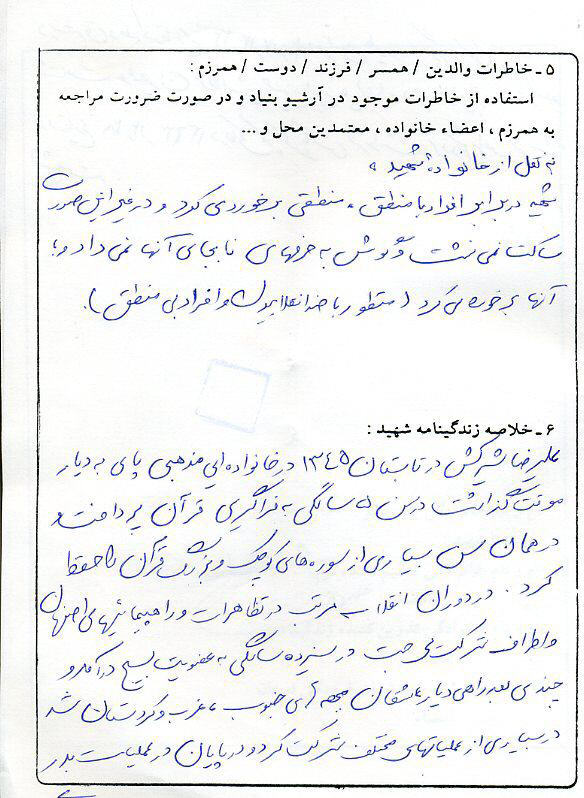 ۵ ـ خاطرات والدین / همسر / فرزند / دوست / همرزم :
استفاده از خاطرات موجود در آرشیو بنیاد و در صورت ضرورت مراجعه
به همرزم ، اعضاء خانواده ، معتمدین محل و ...
به نقل از خانوادهٔ شهید ،
شهید در برابر افراد با منطق ، منطقی برخورد می کرد و در غیر این صورت
ساکت نمی نشست و گوش به حرفهای نابجای آنها نمی داد و با
آنها برخورد می کرد ( منظور با ضد انقلابیون و افراد بی منطق ) .
۶ ـ خلاصه زندگینامه شهید :
علیرضا در تابستان ۱۳۴۵ در خانواده ای مذهبی پای به دیار
گذاشت در سن ۵ سالگی به فراگیری قرآن پرداخت و
در همان سن بسیاری از سوره های کوچک و بزرگ قرآن را حفظ
کرد . در دوران انقلاب مرتب در تظاهرات و راهپیمائیهای اصفهان
و اطراف شرکت می جست در سیزده سالگی به عضویت بسیج در آمد و
چندی بعد راهی دیار عاشقان جبهه های جنوب ، غرب و کردستان شد
در بسیاری از عملیاتهای مختلف شرکت کرد و در پایان در عملیات بدر